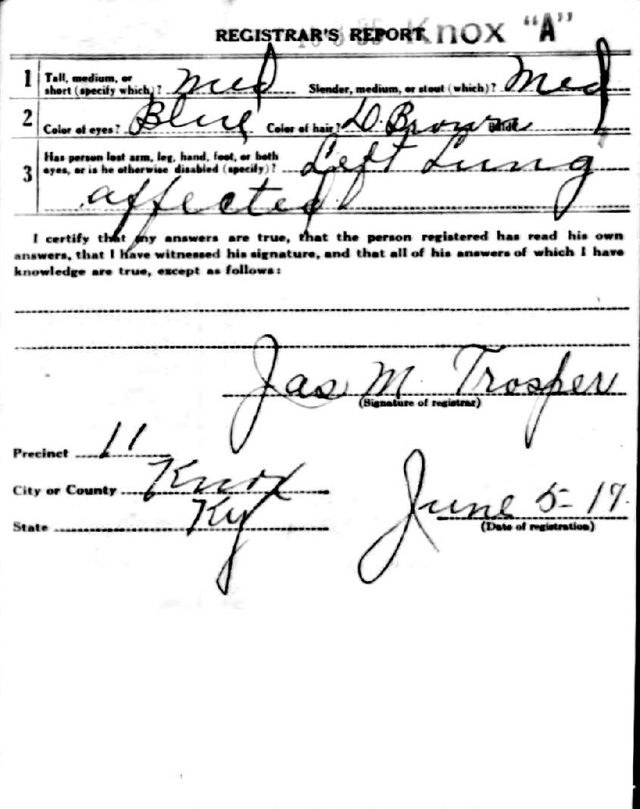 REGISTRAR'S REPORT Knox "A"
1 Tall, medium, or short (specify which)? Med Slender, medium, or stout (which)? Med
2 Color of eyes? Blue Color of hair? D. Brown
3 Has person lost arm, leg, hand, foot, or both eyes, or is he otherwise disabled (specify)? Left Lung
affected
I certify that my answers are true, that the person registered has read his own
answers, that I have witnessed his signature, and that all of his answers of which I have
knowledge are true, except as follows:
Jas M. Trosper
(Signature of registrar)
Precinct 11
City or County Knox
State Ky
June 5-17.
(Date of registration)